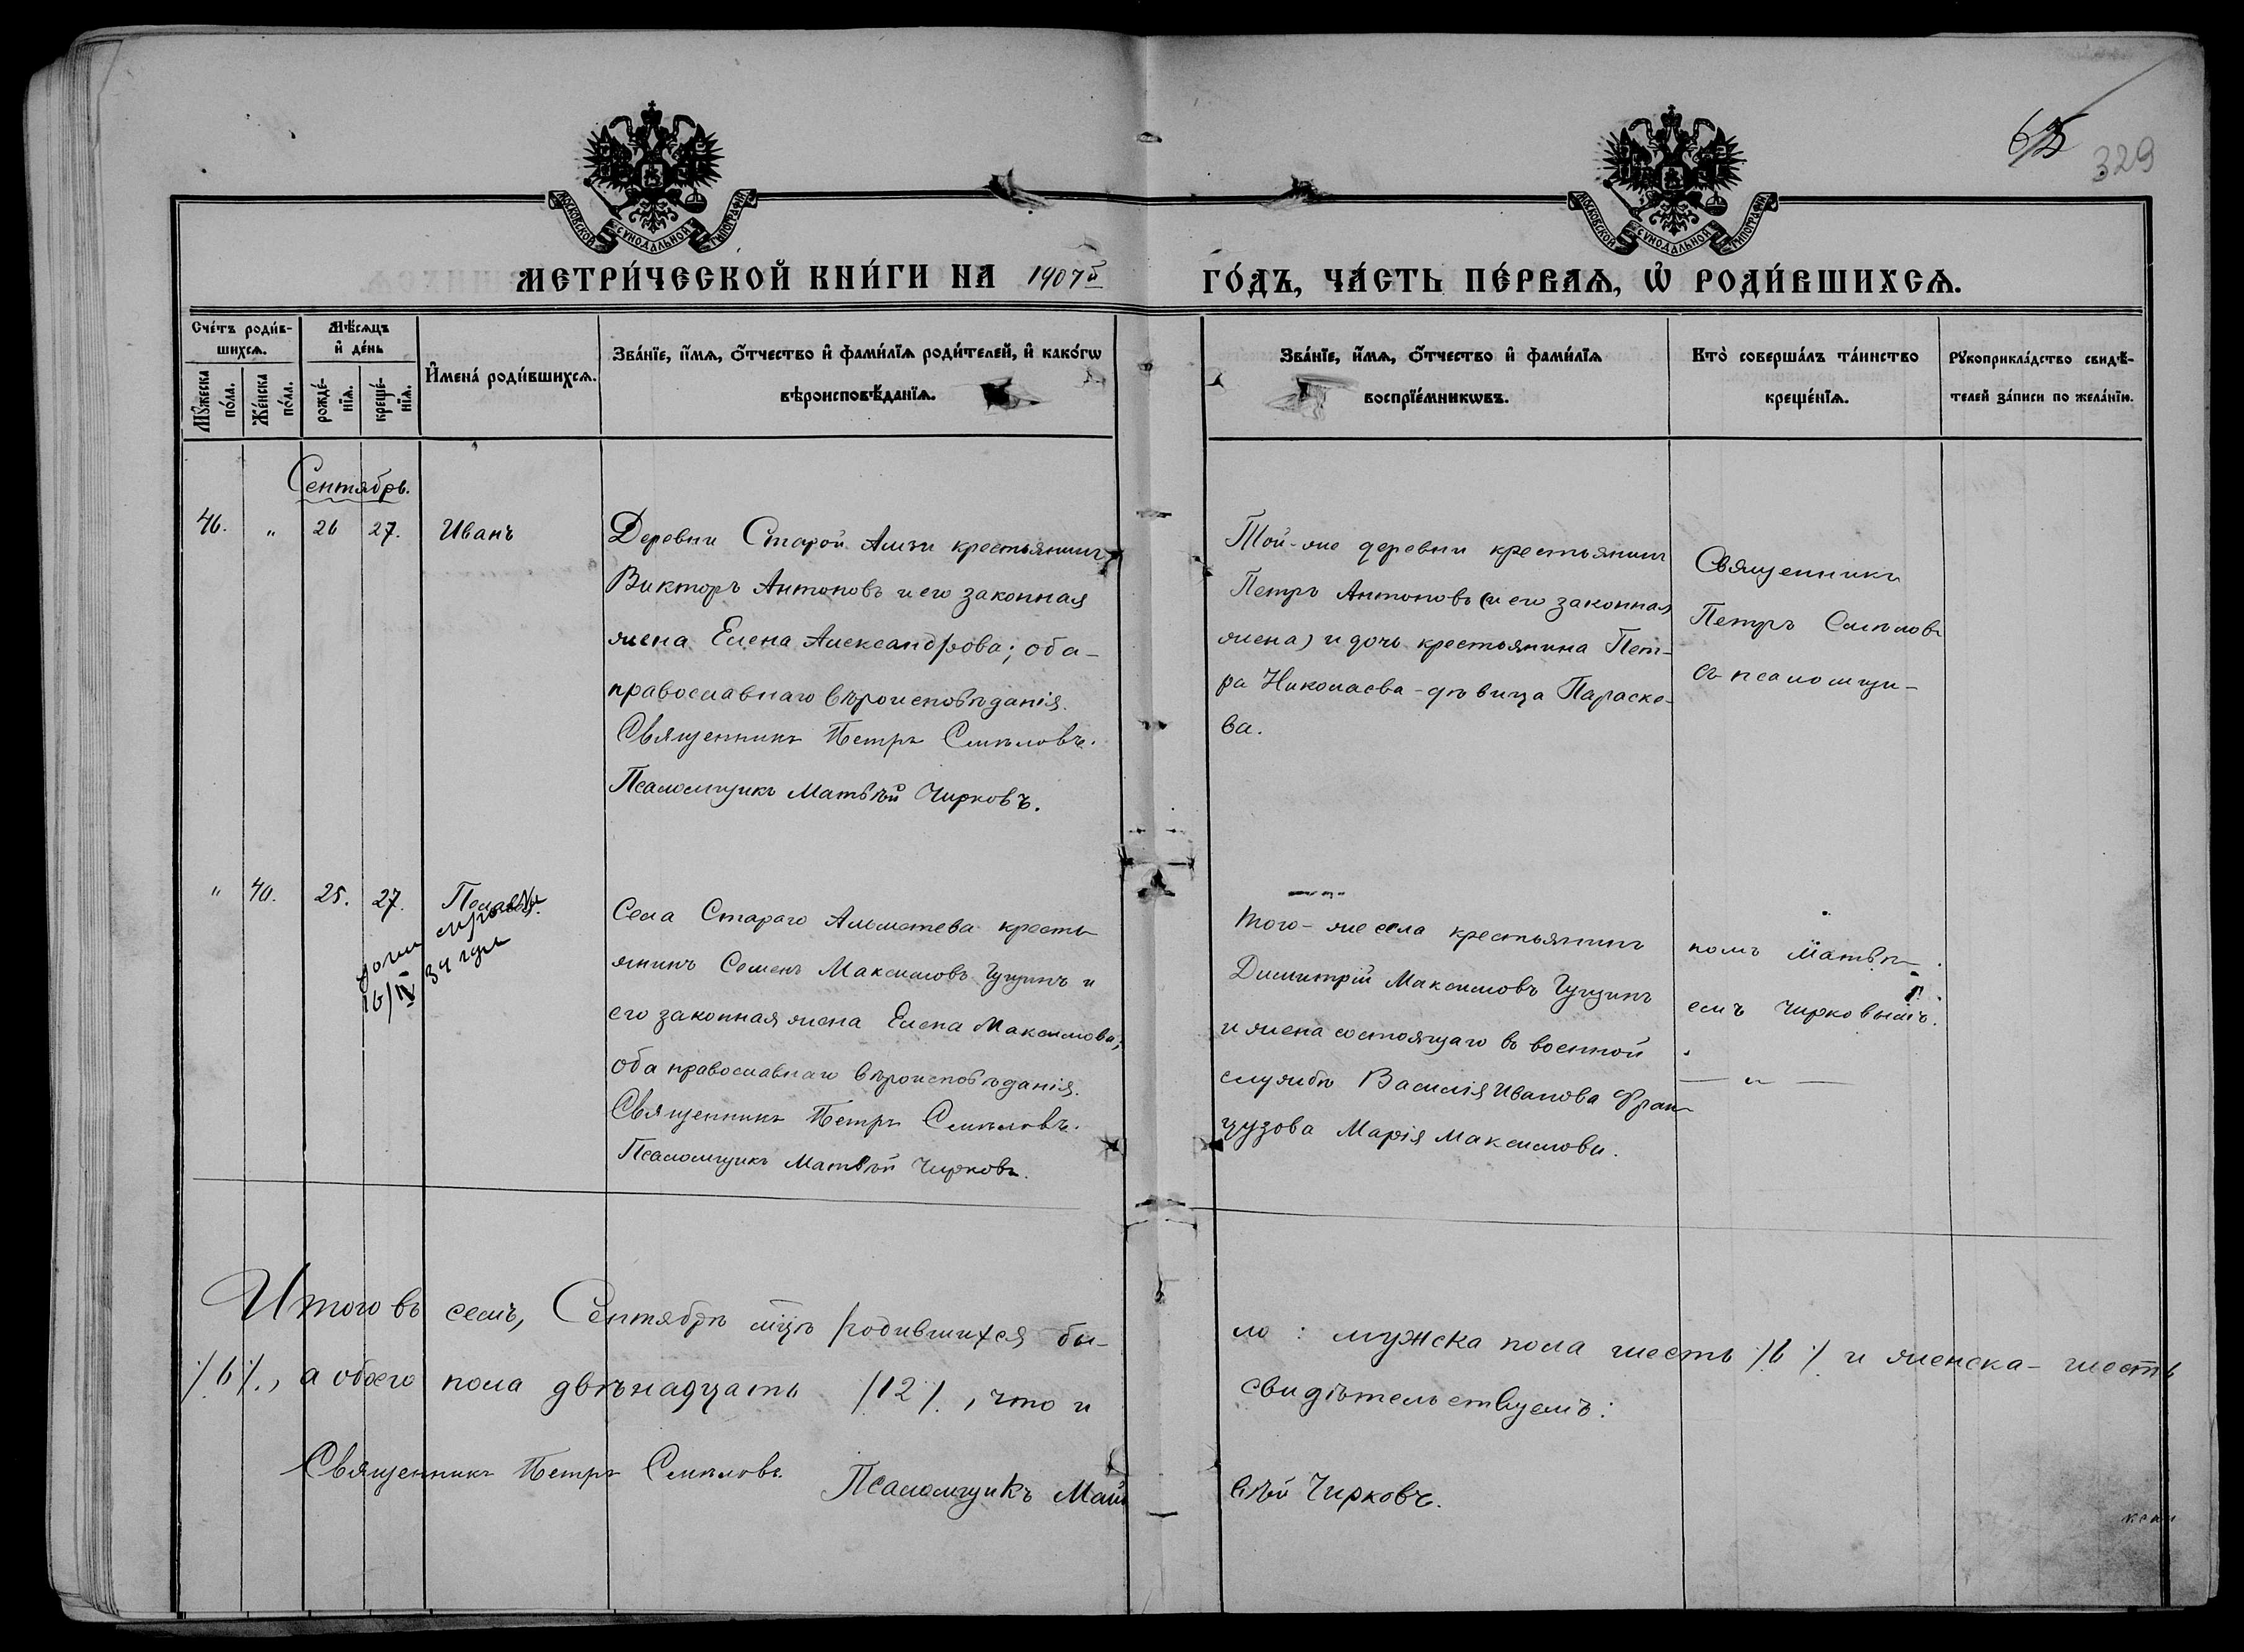 65
329
МОСКОВСКОЙ СѴНОДАЛЬНОЙ ТИПОГРАФІИ
МОСКОВСКОЙ СѴНОДАЛЬНОЙ ТИПОГРАФІИ
МЕТРИ́ЧЕСКОЙ КНИ́ГИ НА 1907й ГО́ДЪ, ЧА́СТЬ ПЕ́РВАѦ, Ѡ҆ РОДИ́ВШИХСѦ.
Сче́тъ роди́в-
шихсѧ.
Мꙋ́жеска
по́ла.
Же́нска
по́ла.
Мѣ́сѧцъ
и҆ де́нь
рожде́-
нїѧ.
креще́-
нїѧ.
И҆мена̀ роди́вшихсѧ.
Зва́нїе, и҆́мѧ, ѻ҆́тчество и҆ фами́лїѧ роди́телей, и҆ како́гѡ
вѣроисповѣ́данїѧ.
Зва́нїе, и҆́мѧ, ѻ҆́тчество и҆ фами́лїѧ
воспрїе́мникѡвъ.
Кто̀ соверша́лъ та́инство
креще́нїѧ.
Рꙋкоприкла́дство свидѣ́-
телей за́писи по жела́нїю.
Сентябрь.
46. „ 26 27. Иванъ
Деревни Старой Амзи крестьянинъ
Викторъ Антоновъ и его законная
жена Елена Александрова; оба-
православнаго вѣроисповѣданія.
Священникъ Петръ Смѣловъ.
Псаломщикъ Матвѣй Чирковъ.
Той-же деревни крестьянинъ
Петръ Антоновъ (и его законная
жена) и дочь крестьянина Пет-
ра Николаева-дѣвица Параске-
ва.
Священникъ
Петръ Смѣловъ
съ псаломщи-
„ 40. 25. 27. Пелагія.
16/IV 34 года
Села Стараго Альметева кресть-
янинъ Семенъ Максимовъ Гущинъ и
его законная жена Елена Максимова;
оба православнаго вѣроисповѣданія.
Священникъ Петръ Смѣловъ.
Псаломщикъ Матвѣй Чирковъ.
Того-же села крестьянинъ
Димитрій Максимовъ Гущинъ
и жена состоящаго въ военной
службѣ Василія Иванова Фран-
цузова Марія Максимова.
комъ Матвѣ-
емъ Чирковымъ.
— „ —
Итого въ семъ, Сентябрѣ мцѣ родившихся бы-
ло: мужска пола шесть /6/ и женска-шесть
/6/., а обоего пола двѣнадцать /12/., что и
свидѣтельствуемъ:
Священникъ Петръ Смѣловъ.
Псаломщикъ Мат-
вѣй Чирковъ.